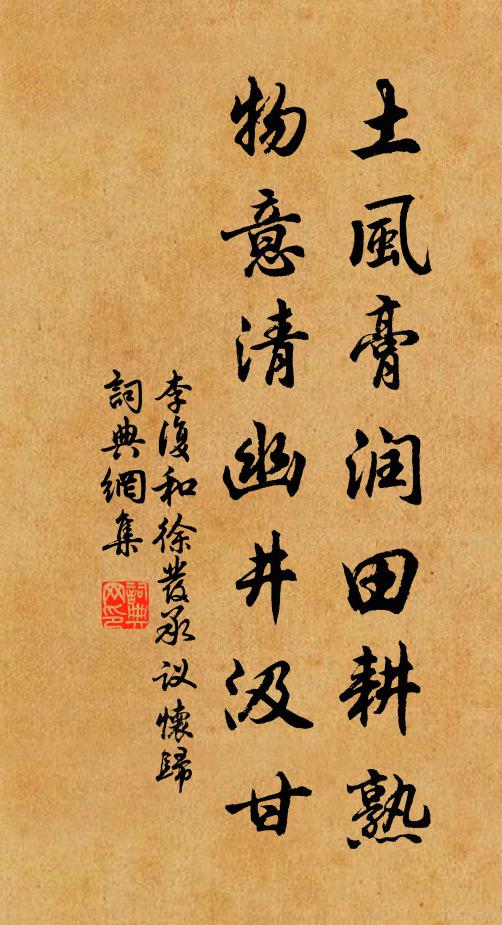 土風膏润田耕熟
物意清幽井汲甘
李復和徐發承议懷歸
詞典網集
詞典网印